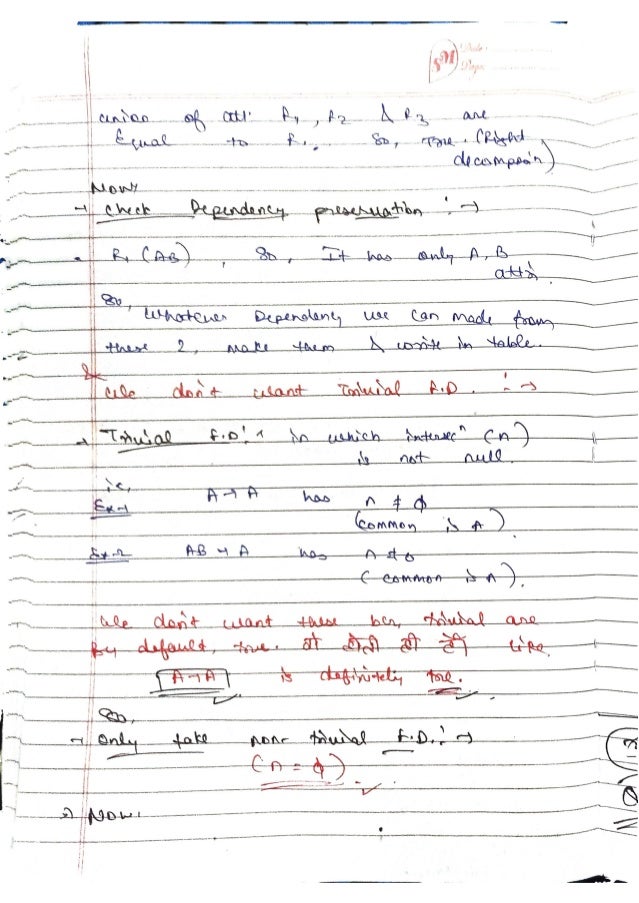 SM Date:
Page:
union of att. R1, R2 & R3 are
Equal to R. So, True. (Right
decomposn)
Now,
→ Check Dependency preservation :→
R1 (AB), So, It has only A, B
attr.
So,
Whatever Dependency we can made from
these 2, make them & write in table.
We don't want Trivial F.D. :→
→ Trivial F.D: in which intersecn (∩)
is not null.
ie,
Ex-1 A→A has ∩ ≠ ϕ
(common is A).
Ex-2 AB→A has ∩ ≠ ϕ
(common is A).
We don't want these bcz, trivial are
By default, true. वो होती ही हैं like
A→A is definitely true.
So,
→ Only take non-trivial F.D. :→
(∩ = ϕ)
Now,